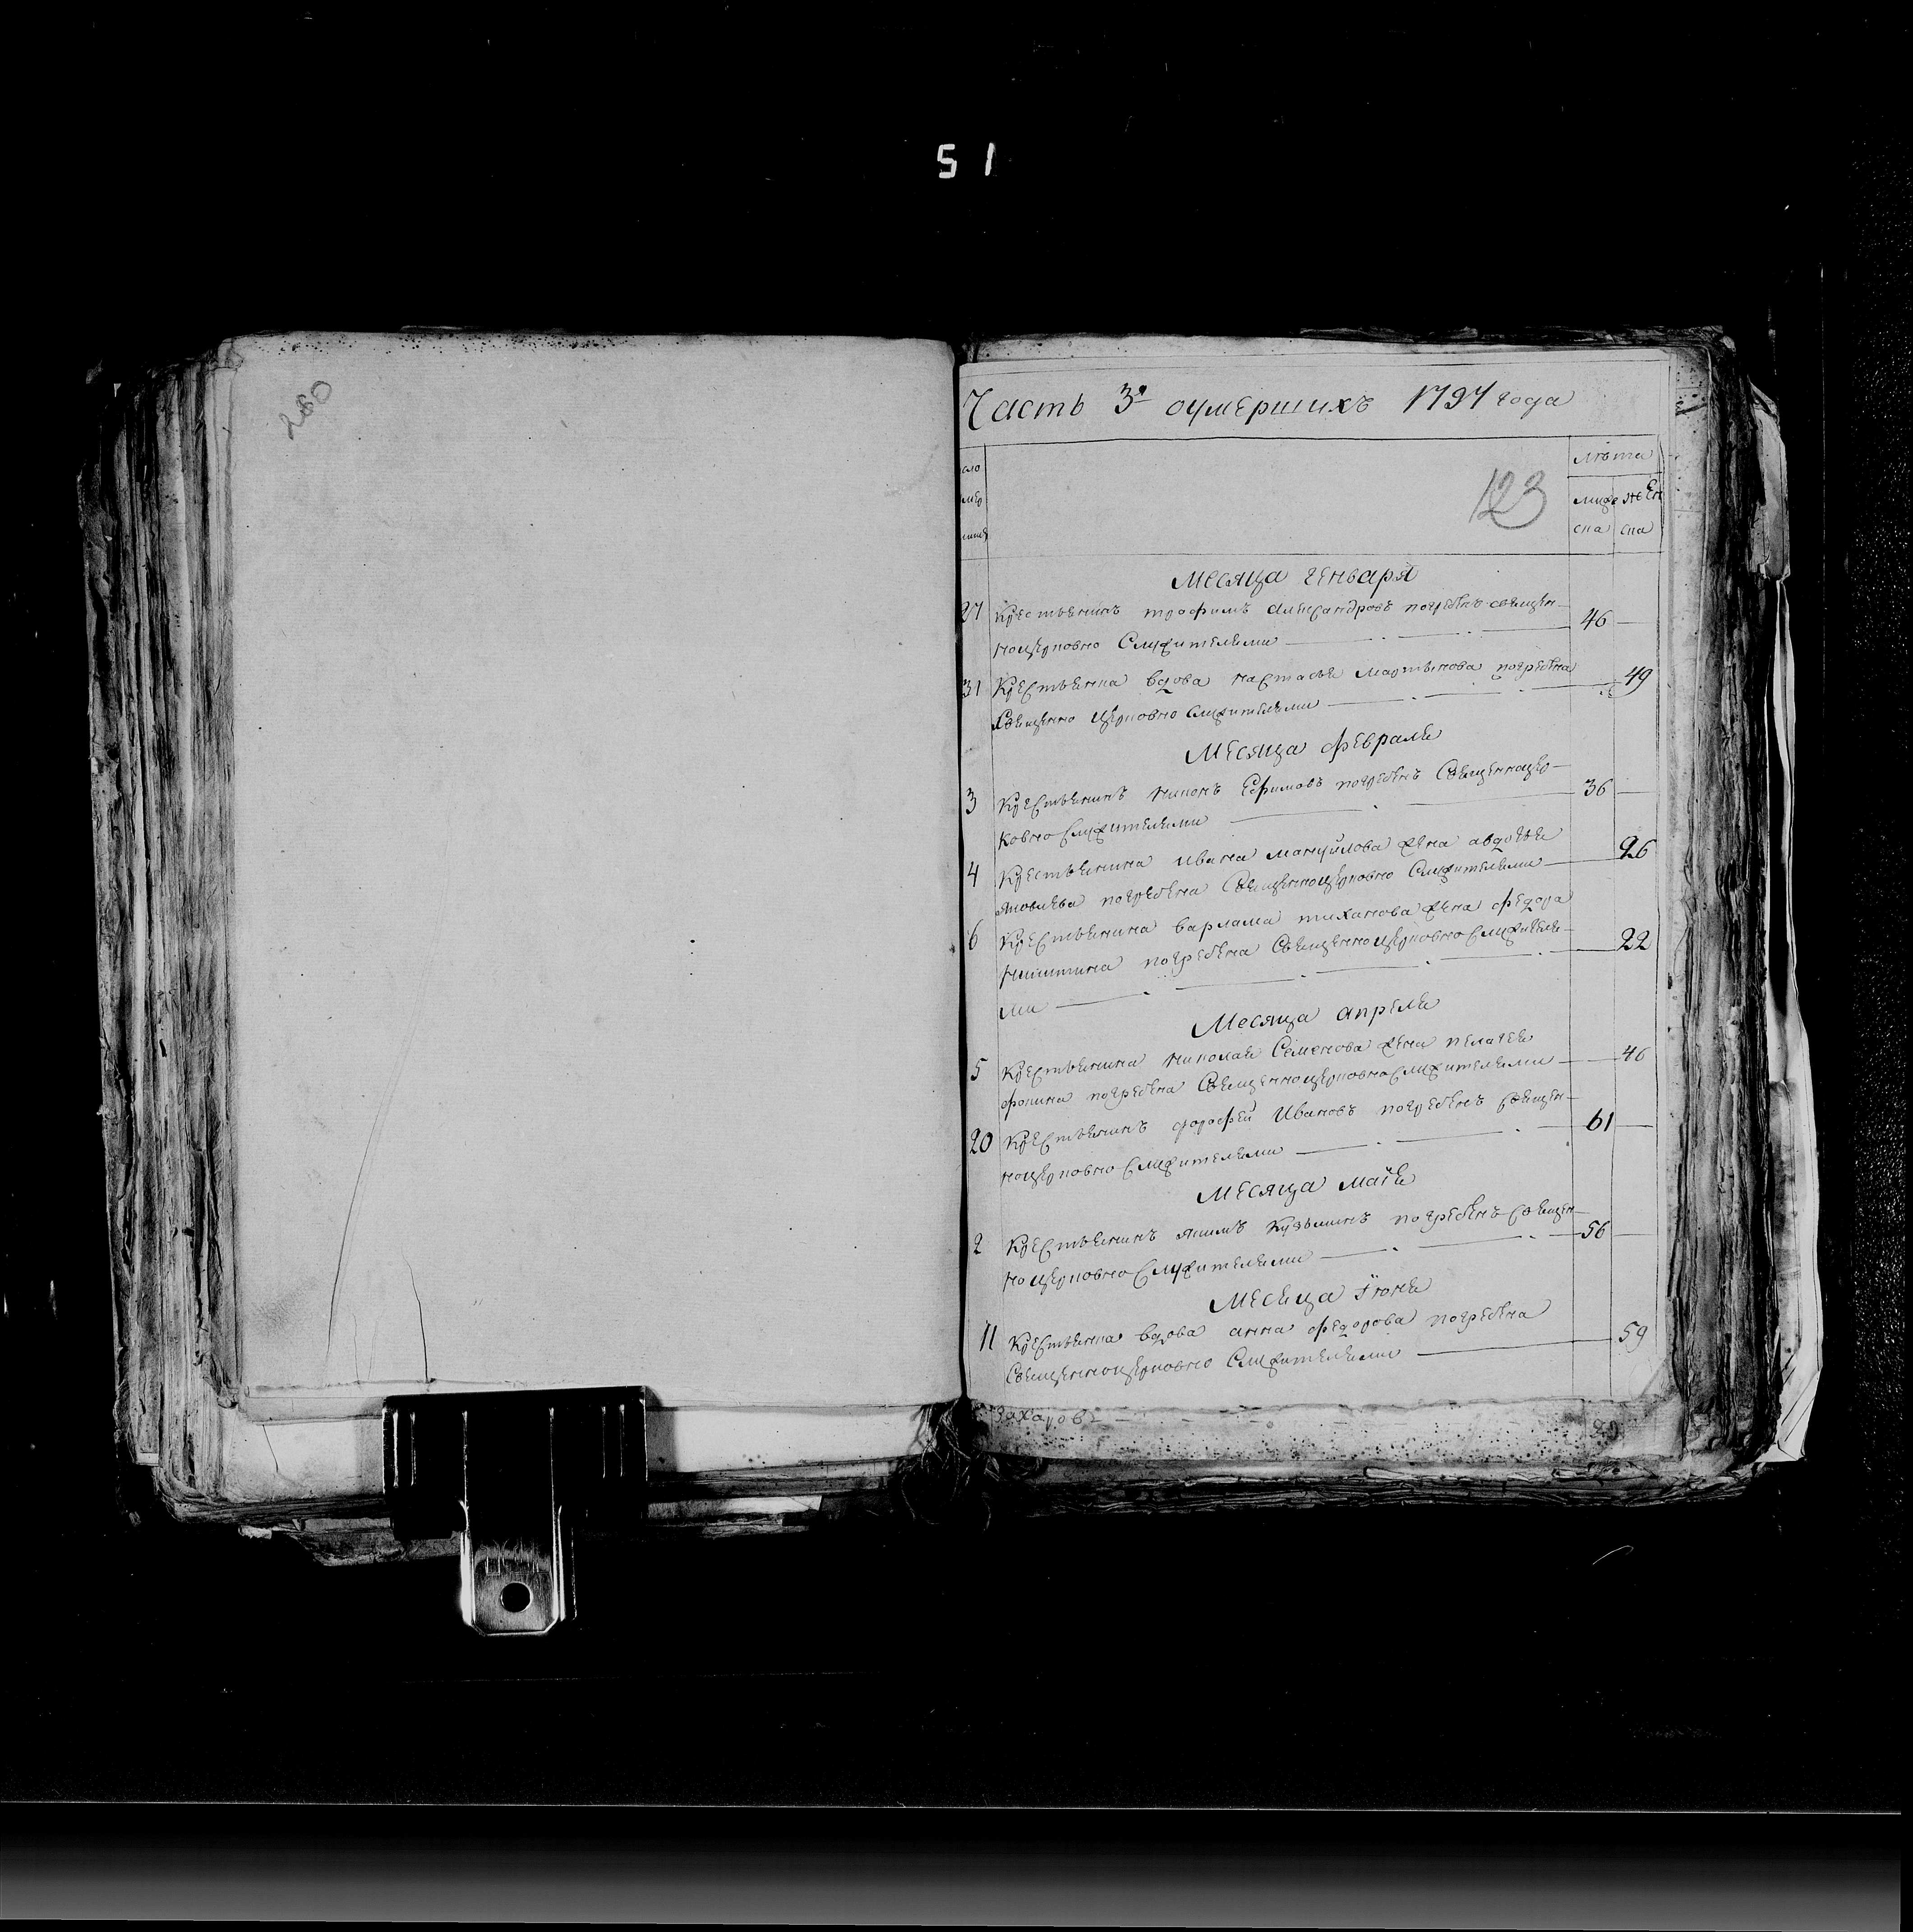 51
260
Часть 3я оумершихъ 1797 года
123
лѣта
муже женс
ска ска
Месяца генваря
27 Крестьянинъ трофимъ александровъ погребенъ священ-
ноцерковно служителями 46
31 Крестьянка вдова настасья мартынова погребена
священно церковно служителями 49
Месяца февраля
3 Крестьянинъ никонъ ефимовъ погребенъ священноцер-
ковно служителями 36
4 Крестьянина ивана мануйлова жена авдотья
яковлева погребена священноцерковно служителями 26
6 Крестьянина варлама тиханова жена федора
никитина погребена священноцерковнослужителя- 22
ми
Месяца апреля
5 Крестьянина николая семенова жена пелагея
фокина погребена священноцерковнослужителями 46
20 Крестьянинъ дорофей ивановъ погребенъ священ-
ноцерковно служителями 61
Месяца маія
2 Крестьянинъ якимъ кузьминъ погребенъ священ-
ноцерковно служителями 56
Месяца Іюня
11 Крестьянка вдова анна федорова погребена
священноцерковно служителями 59
Захаровъ